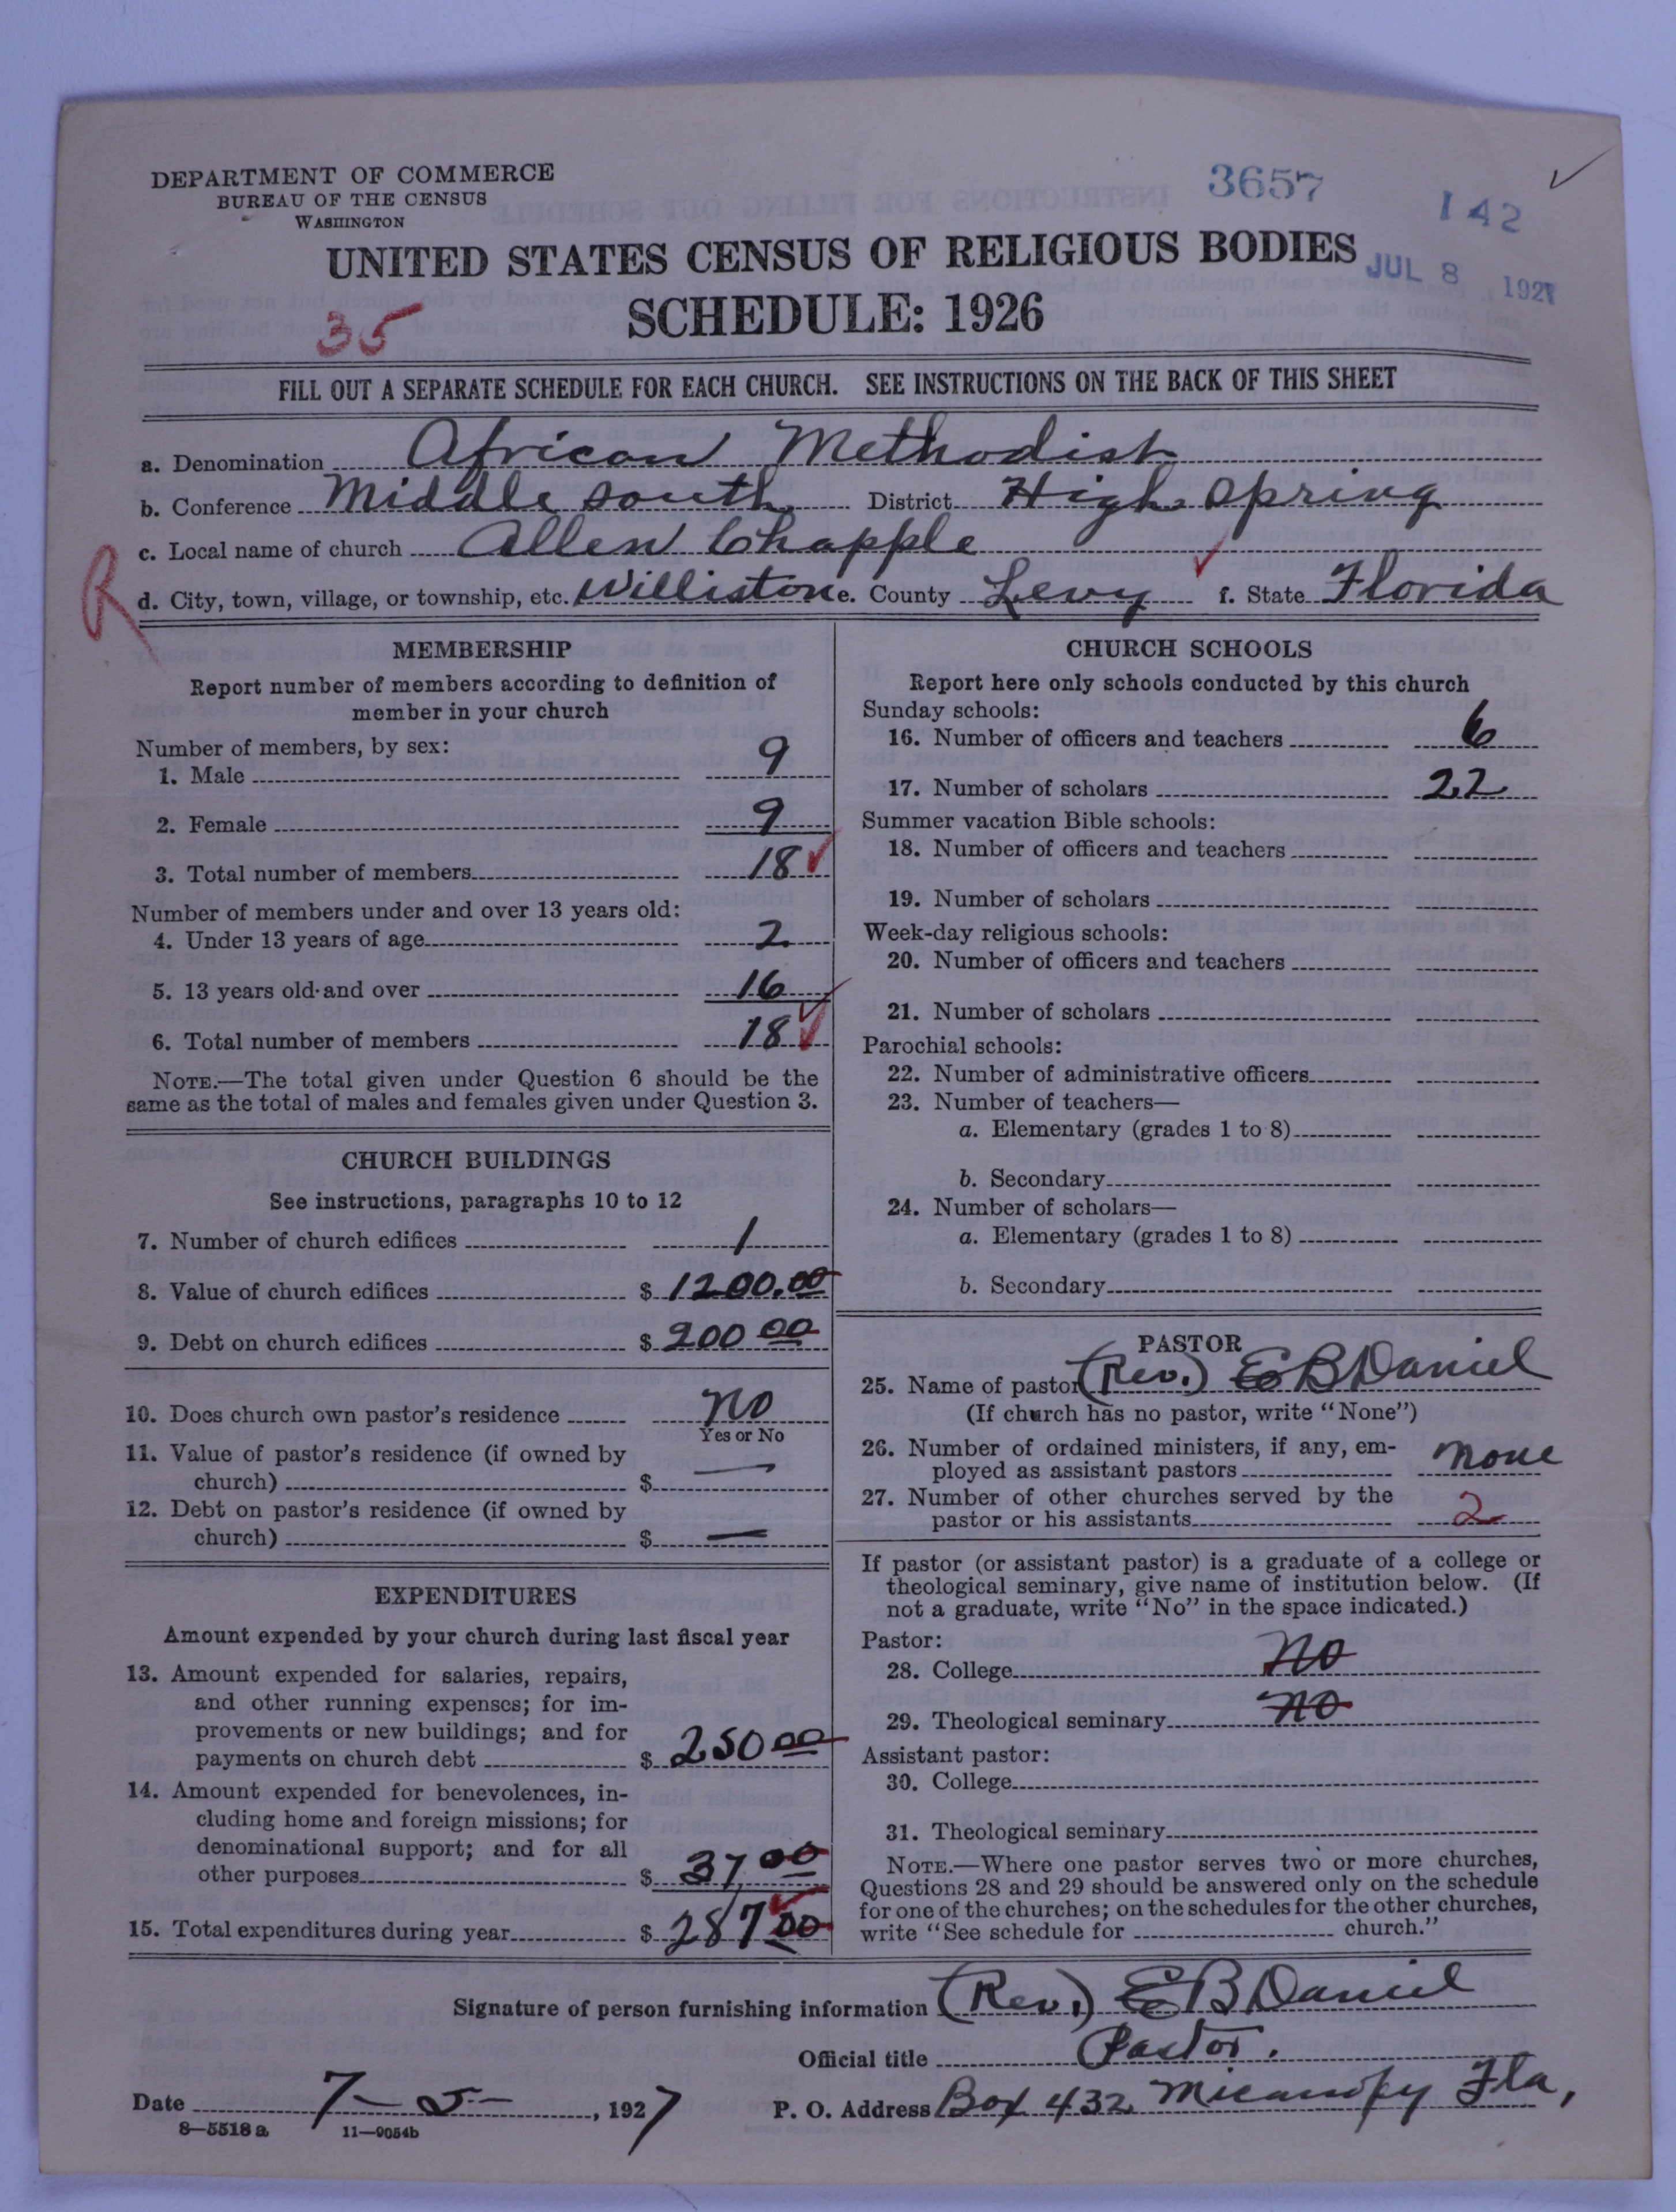 DEPARTMENT OF COMMERCE
BUREAU OF THE CENSUS
WASHINGTON
3657
142
JUL 8 1927
UNITED STATES CENSUS OF RELIGIOUS BODIES
SCHEDULE: 1926
35
FILL OUT A SEPARATE SCHEDULE FOR EACH CHURCH. SEE INSTRUCTIONS ON THE BACK OF THIS SHEET
a. Denomination African Methodist
b. Conference Middle South District High Spring
c. Local name of church Allen Chapple
R
d. City, town, village, or township, etc. Williston e. County Levy f. State Florida
MEMBERSHIP
Report number of members according to definition of
member in your church
Number of members, by sex:
1. Male 9
2. Female 9
3. Total number of members 18
Number of members under and over 13 years old:
4. Under 13 years of age 2
5. 13 years old and over 16
6. Total number of members 18
NOTE.—The total given under Question 6 should be the
same as the total of males and females given under Question 3.
CHURCH BUILDINGS
See instructions, paragraphs 10 to 12
7. Number of church edifices 1
8. Value of church edifices $ 1200.00
9. Debt on church edifices $ 200 00
10. Does church own pastor's residence no
Yes or No
11. Value of pastor's residence (if owned by
church) $ —
12. Debt on pastor's residence (if owned by
church) $ —
EXPENDITURES
Amount expended by your church during last fiscal year
13. Amount expended for salaries, repairs,
and other running expenses; for im-
provements or new buildings; and for
payments on church debt $ 250 00
14. Amount expended for benevolences, in-
cluding home and foreign missions; for
denominational support; and for all
other purposes $ 37 00
15. Total expenditures during year $ 287 00
CHURCH SCHOOLS
Report here only schools conducted by this church
Sunday schools:
16. Number of officers and teachers 6
17. Number of scholars 22
Summer vacation Bible schools:
18. Number of officers and teachers
19. Number of scholars
Week-day religious schools:
20. Number of officers and teachers
21. Number of scholars
Parochial schools:
22. Number of administrative officers
23. Number of teachers—
a. Elementary (grades 1 to 8)
b. Secondary
24. Number of scholars—
a. Elementary (grades 1 to 8)
b. Secondary
PASTOR
25. Name of pastor (Rev.) E B Daniel
(If church has no pastor, write "None")
26. Number of ordained ministers, if any, em-
ployed as assistant pastors none
27. Number of other churches served by the
pastor or his assistants 2
If pastor (or assistant pastor) is a graduate of a college or
theological seminary, give name of institution below. (If
not a graduate, write "No" in the space indicated.)
Pastor:
28. College no
29. Theological seminary no
Assistant pastor:
30. College
31. Theological seminary
NOTE.—Where one pastor serves two or more churches,
Questions 28 and 29 should be answered only on the schedule
for one of the churches; on the schedules for the other churches,
write "See schedule for church."
Signature of person furnishing information (Rev.) E B Daniel
Official title Pastor.
Date 7–5– , 1927 P. O. Address Box 432 Micanopy Fla,
8—5518 a 11—9054b